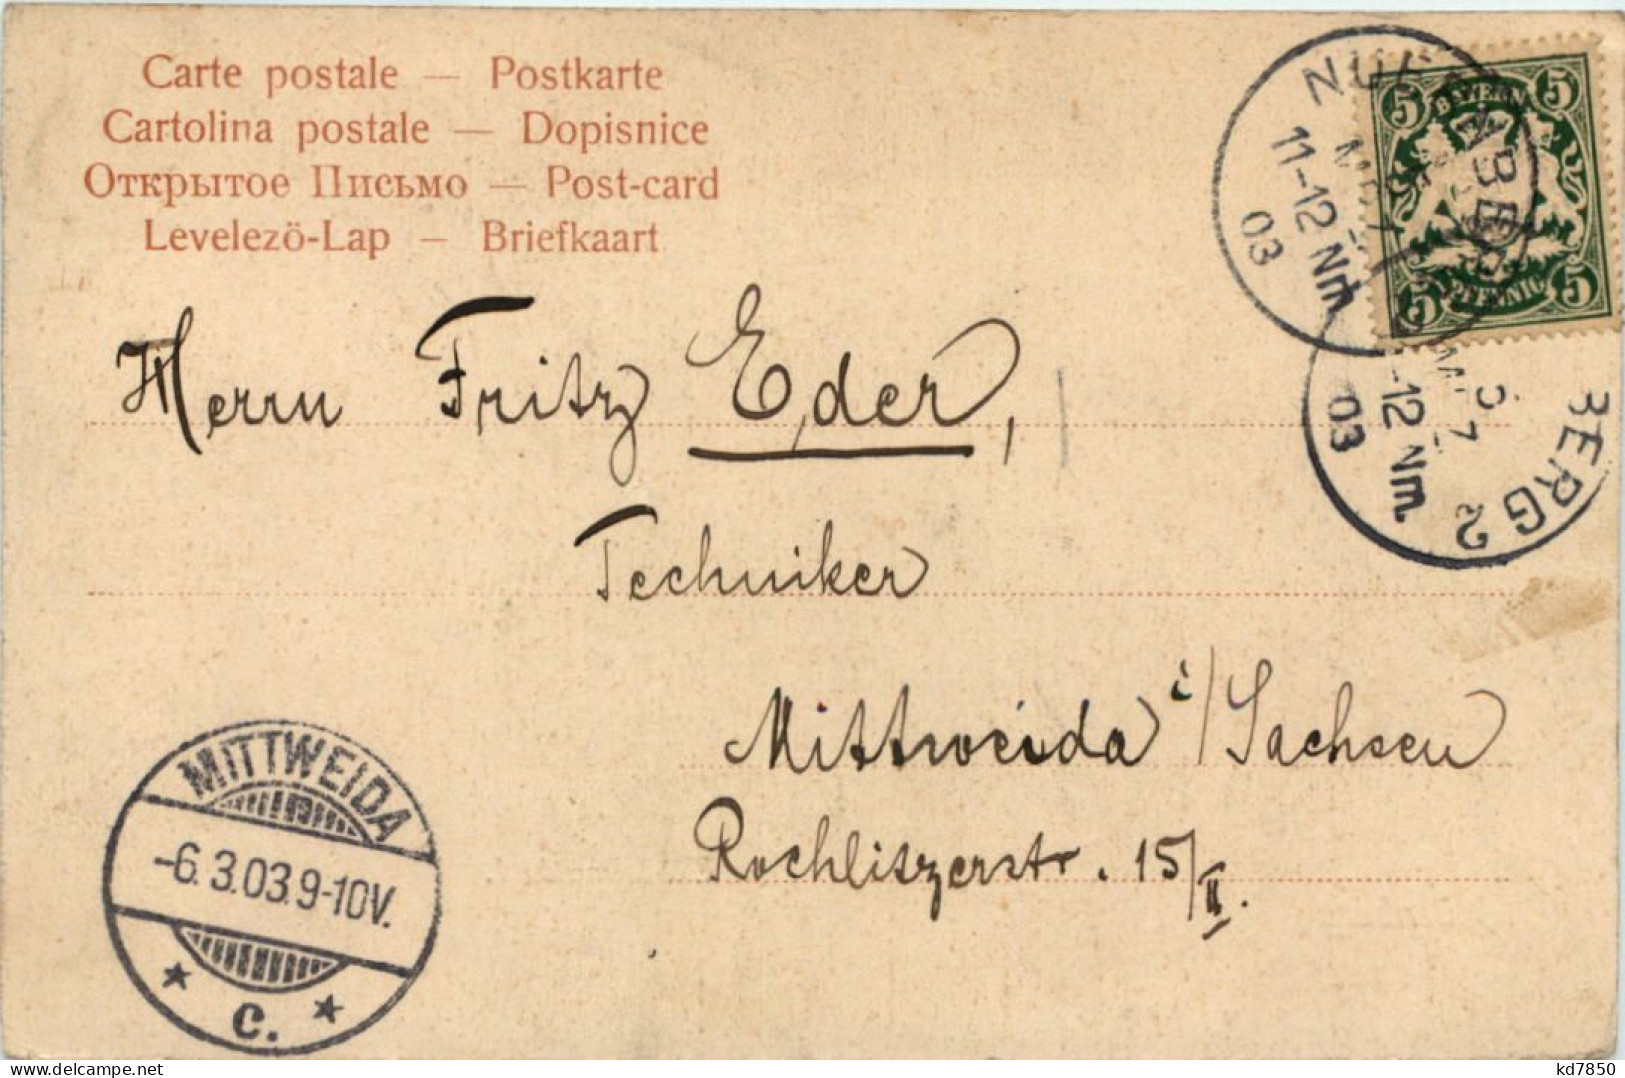 Carte postale — Postkarte
Cartolina postale — Dopisnice
Открытое Письмо — Post-card
Levelező-Lap — Briefkaart
BAYERN
5 5
5 5
PFENNIG
11-12 Nm
03
BERG 2
-12 Nm
03
Herrn Fritz Eder,
Techniker
Mittweida i/Sachsen
Rochlitzerstr. 15/II.
MITTWEIDA
-6.3.03.9-10V.
* c. *
kd7850